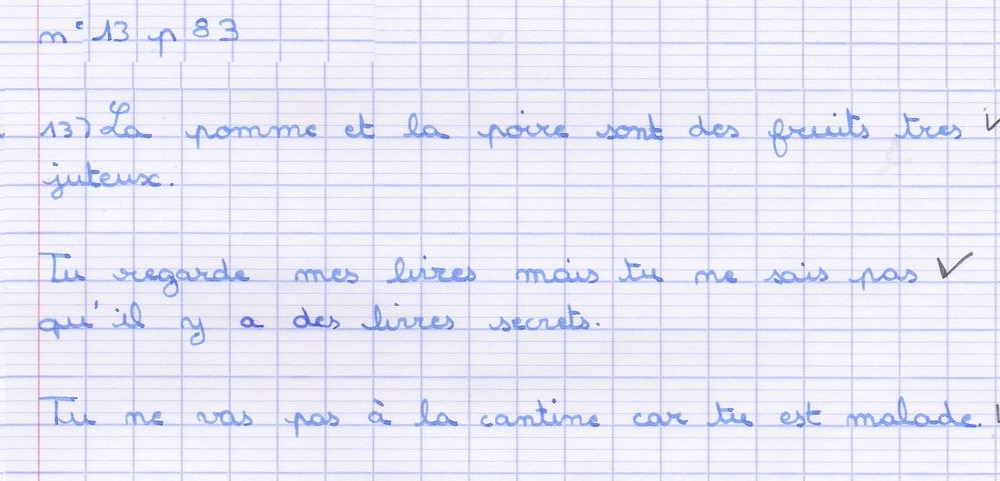 n° 13 p 83
13) La pomme et la poire sont des fruits tres
juteux.
Tu regarde mes livres mais tu ne sais pas
qu'il y a des livres secrets.
Tu ne vas pas à la cantine car tu est malade.